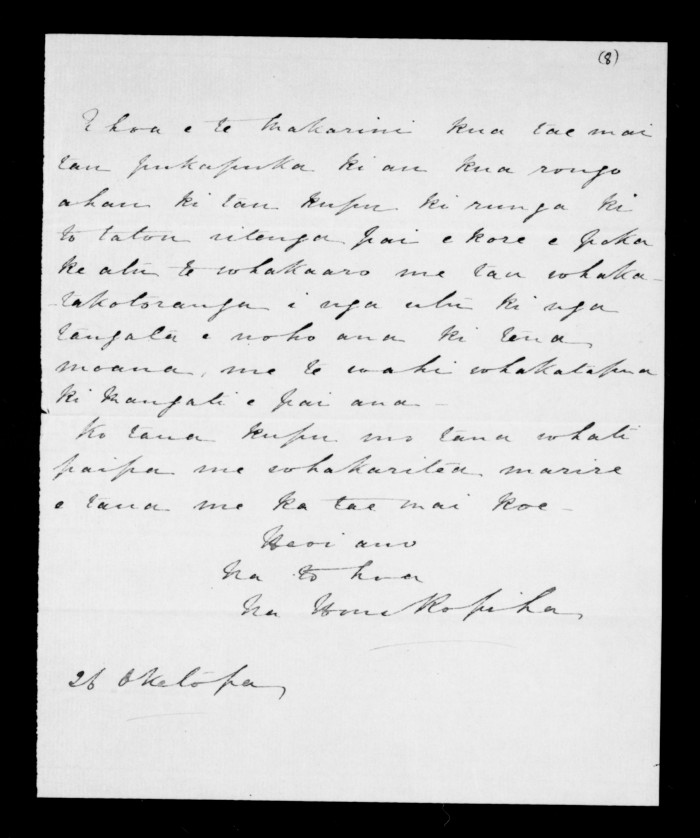 (8)
E hoa e te Makarini kua tae mai
tau pukapuka ki au kua rongo
ahau ki tau kupu ki runga ki
to tatou ritenga pai e kore e poka
ke atu te whakaaro me tau whaka-
takotoranga i nga utu ki nga
tangata e noho ana ki tena
moana, me te wahi whakatapua
ki Mangati e pai ana -
Ko taua kupu mo taua whati
paipa me whakaritea marire
e taua me ka tae mai koe -
Heoi ano
Na to hoa
Na Hone Ropiha
26 Oketopa